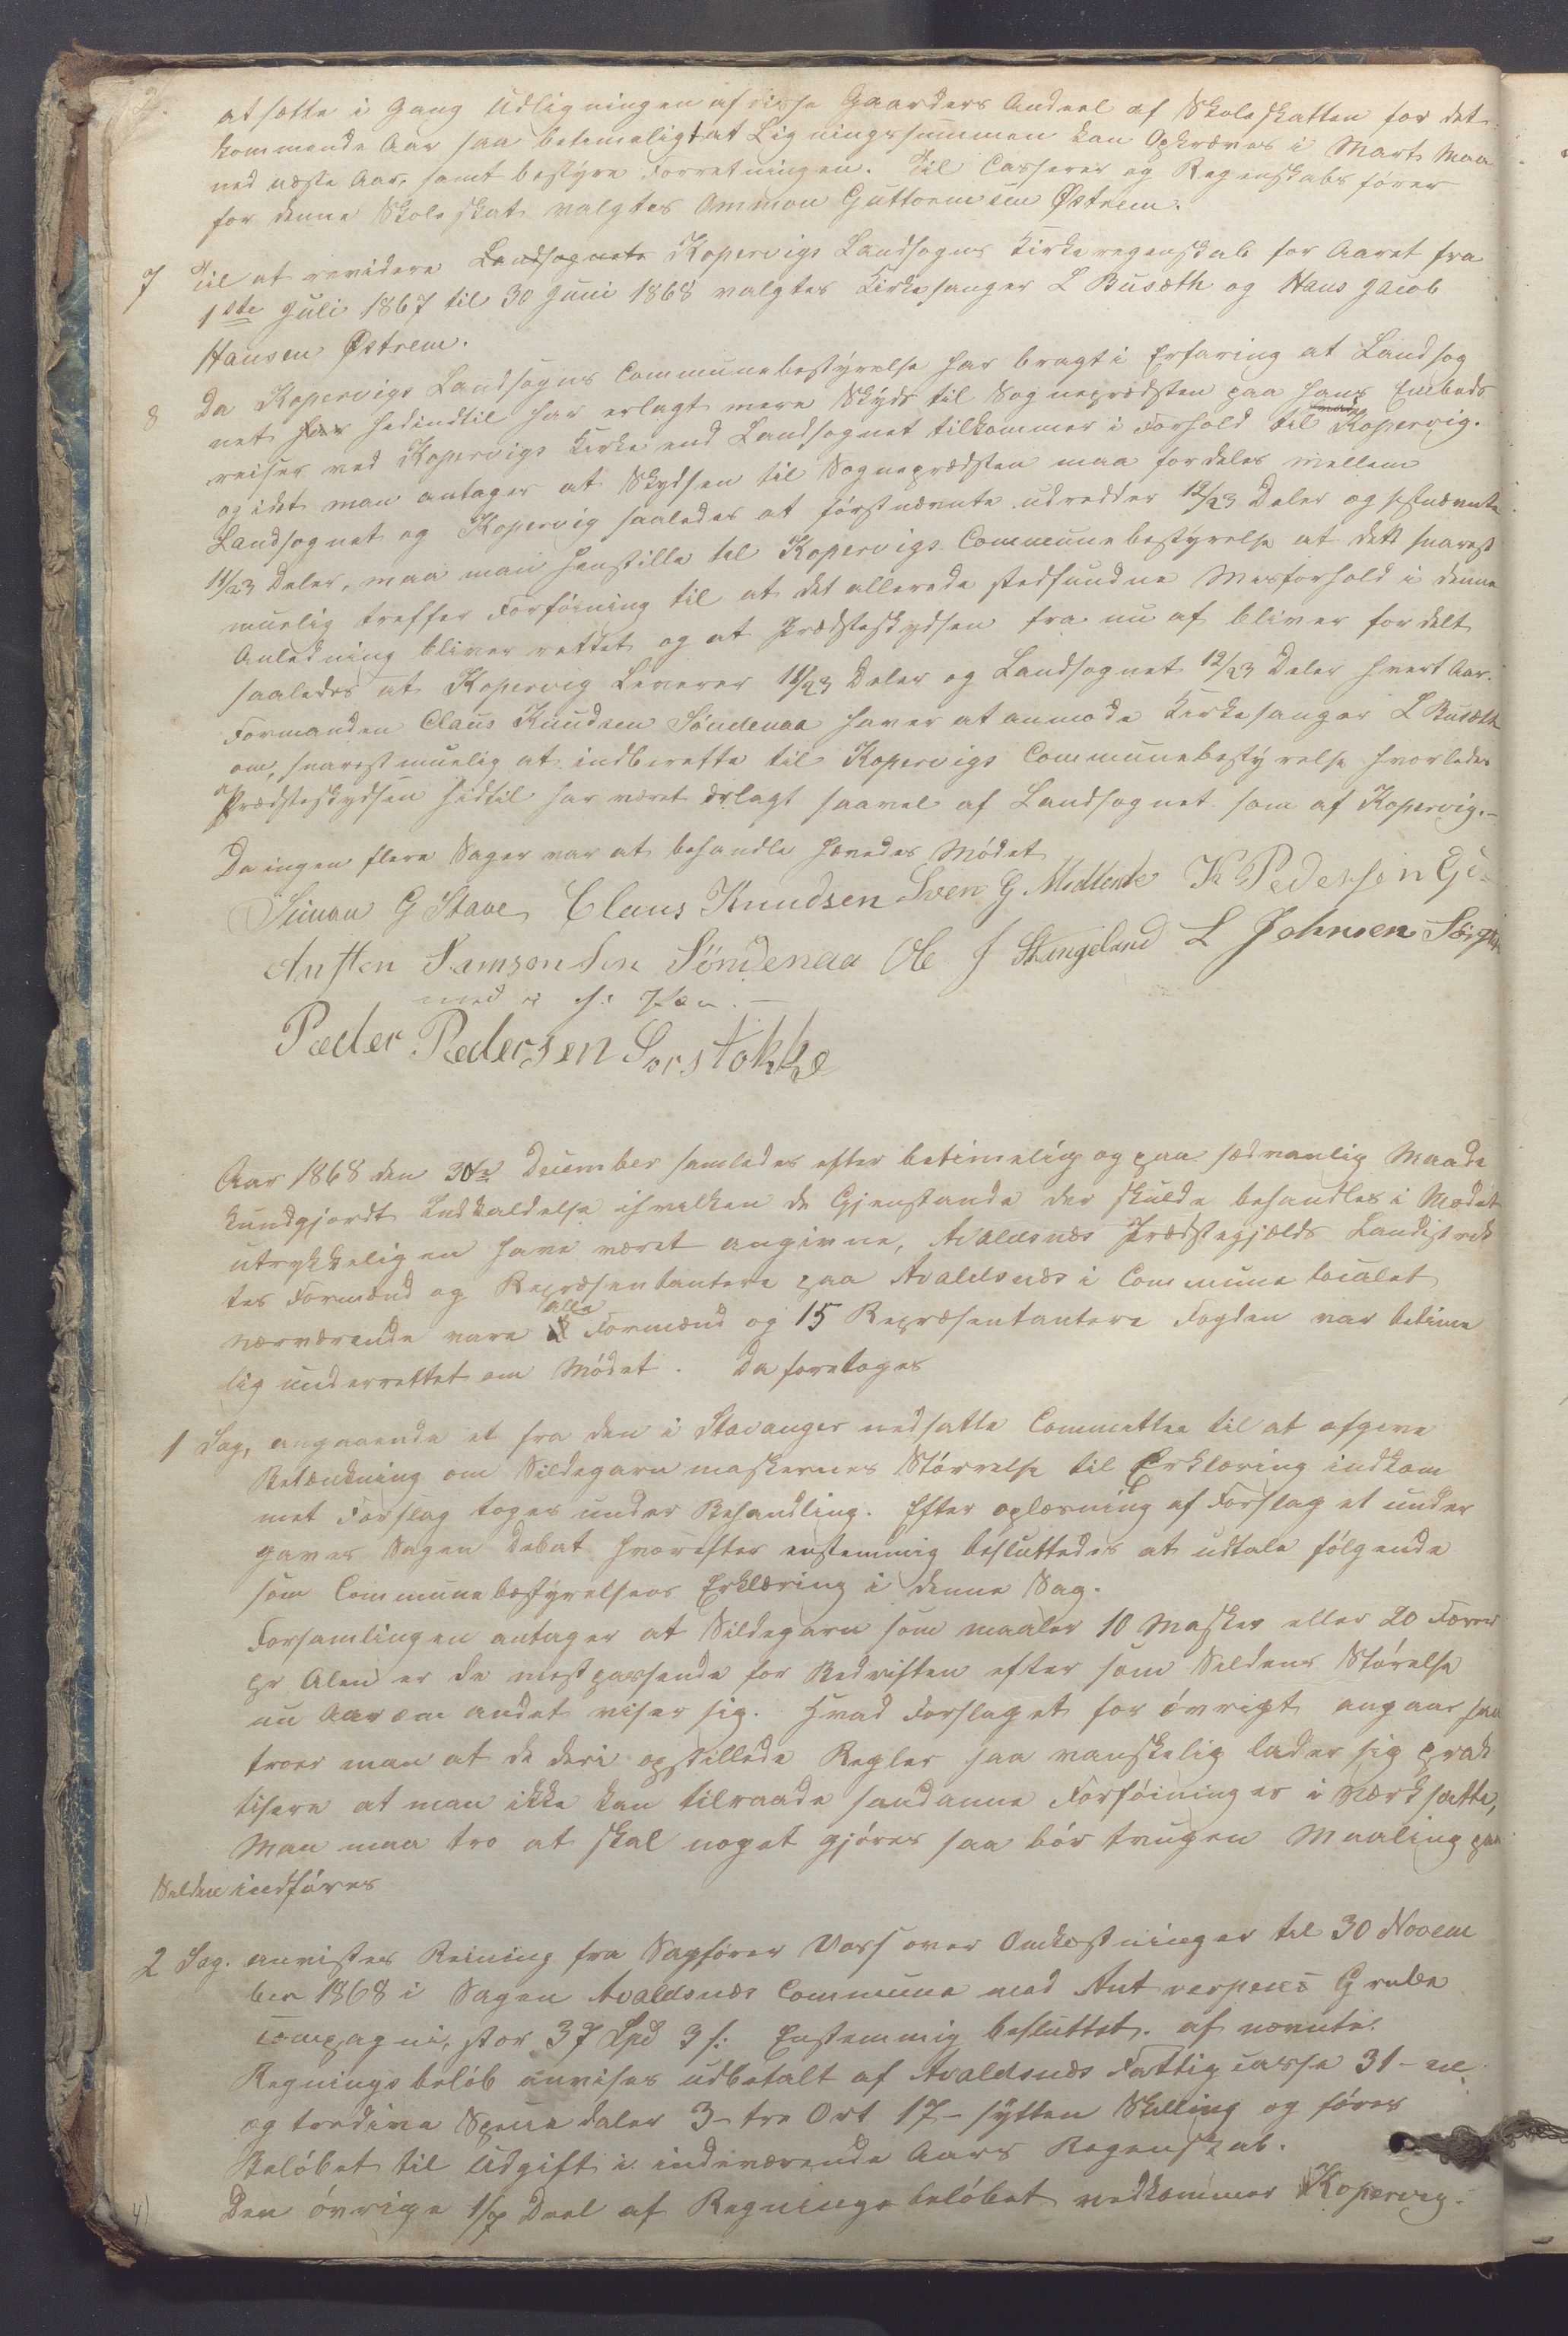 2.
at sætte i Gang Udligningen af disse Gaarders Andeel af Skoleskatten for det
kommende Aar saa betimeligt at Ligningssummen kan Opkræves i Marts Maa
ned næste Aar, samt bestyre Forretningen. Til Casserer og Regenskabsfører
for denne Skoleskat valgtes Ammon Guttormsen Østrem.
7 Til at revidere Landsognets Kopervigs Landsogns Kirkeregenskab for Aaret fra
1ste Juli 1867 til 30 Juni 1868 valgtes Kirkesanger L Busæth og Hans Jacob
Hansen Østrem.
8 Da Kopervigs Landsogns Communebestyrelse har bragt i Erfaring at Landsog
net har hedindtil har erlagt mere Skyds til Sogneprædsten paa hans Embeds
reiser ved Kopervigs Kirke end Landsognet tilkommer i Forhold til Kopervig.
og idet man antager at Skydsen til Sogneprædsten maa fordeles mellem
Landsognet og Kopervig saaledes at førstnævnte udredder 12/23 Deler og sistnævnte
11/23 Deler, maa man henstille til Kopervigs Communebestyrelse at dett snarest
muelig treffer Forføining til at det allerede stedfundne Misforhold i denne
Anledning bliver rettet og at Prædsteskydsen fra nu af bliver fordelt
saaledes at Kopervig Leverer 11/23 Deler og Landsognet 12/23 Deler hvert Aar.
Formanden Claus Knudsen Søndenaa haver at anmode Kirkesanger L Busæth
om, snarest muelig at indberette til Kopervigs Communebestyrelse hvorledes
Prædsteskydsen hidtil har været erlagt saavel af Landsognet som af Kopervig.-
Da ingen flere Sager var at behandle hævedes Mødet
Simon G Stave Claus Knudsen Sven G Medlende K Pedersen
Austen Samsonsen Søndenaa Ole J Stangeland L Johnsen
med
Pæder Pædersen Sorstokke
Aar 1868 den 30te December samledes efter betimelig og paa sædvanlig Maade
kundgjordt Indkaldelse ihvilken de Gjenstande der skulde behandles i Mødet
utrykkeligen have været angivne, Avaldsnæs Prædstegjælds Landistrik
tes Formænd og Repræsentantere paa Avaldsnæs i Commune localet
nærværende vare alle Formænd og 15 Repræsentantere Fogden var betime
lig underrettet om Mødet. Da foretoges
1 Sag, angaaende et fra den i Stavanger nedsatte Committee til at afgive
Betænkning om Sildegarnmaskernes Størrelse til Erklæring indkom
met Forslag toges under Behandling. Efter oplæsning af Forslaget under
gaves Sagen Debat hvorefter enstemmig besluttedes at udtale følgende
som Communebestyrelsens Erklæring i denne Sag.
Forsamlingen antager at Sildegarn som maaler 10 Masker eller 20
pr Alen er de mest passende for Bedriften efter som Seldens Størelse
nu Aar om andet viser sig. Hvad Forslaget for øvrigt angaar saa
troer man at de deri opstillede Regler saa vanskelig lader sig prak
tisere at man ikke kan tilraade saadanne Forføininger i Værksætte,
Man maa tro at skal noget gjøres saa bør tvugen Maaling paa
Selden indføres
2 Sag. anvistes Reining fra Sagfører Vors over Omkostninger til 30 Novem
ber 1868 i Sagen Avaldsnæs Commune med Antverpens Grube
compagni, stor 37 Spd 3 s: Enstemmig besluttet. af nævnte
Regningsbeløb anvises udbetalt af Avaldsnæs Fattigcasse 31 - en
og tredive Speciedaler 3 - tre Ort 17 - sytten Skilling og føres
Beløbet til Udgift i indeværende Aars Regenskab.
Den øvrige 1/7 Deel af Regningsbeløbet vedkommer Kopervig.
4)